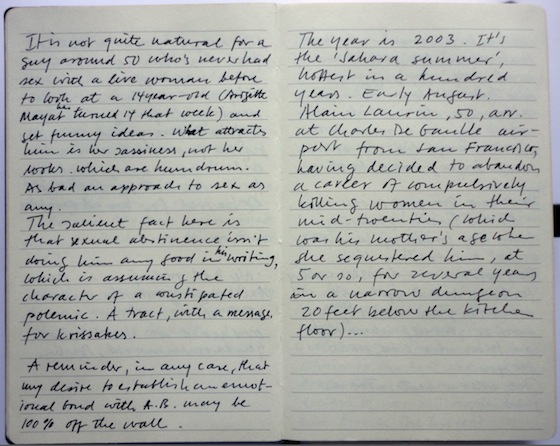 It is not quite natural for a
guy around 50 who's never had
sex with a live woman before
to look at a 14year-old (Brigitte
Mayat turned 14 that week) and
get funny ideas. What attracts
him is her sassiness, not her
looks. which are humdrum.
As bad an approach to sex as
any.
The salient fact here is
that sexual abstinence isn't
doing him any good in his writing,
which is assuming the
character of a constipated
polemic. A tract, with a message,
for krissakes.
A reminder, in any case, that
my desire to establish an emot-
ional bond with A.B. may be
100% off the wall.
The year is 2003. It's
the 'Sahara summer',
hottest in a hundred
years. Early August.
Alain Laurin, 50, arr.
at Charles De Gaulle air-
port from San Francisco,
having decided to abandon
a career of compulsively
killing women in their
mid-twenties (which
was his mother's age when
she sequestered him, at
5 or so, for several years
in a narrow dungeon
20 feet below the kitchen
floor)...